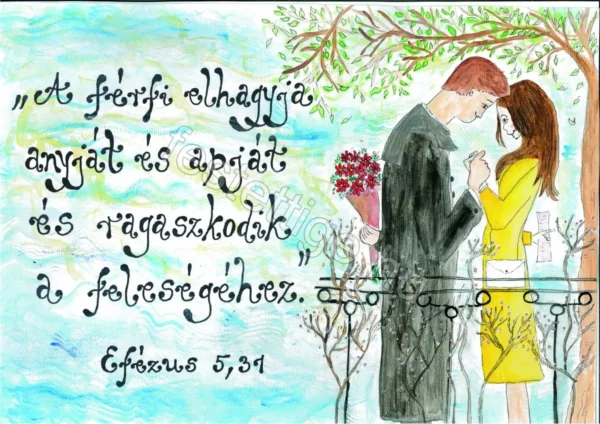 „A férfi elhagyja
anyját és apját
és ragaszkodik
a feleségéhez.”
Efézus 5,31